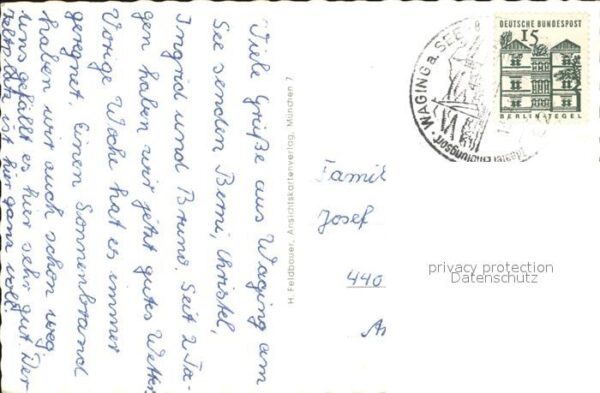 Viele Grüße aus Waging am
See senden Berni, Christel,
Ingrid und Bruno. Seit 2 Ta-
gen haben wir jetzt gutes Wetter.
Vorige Woche hat es immer
geregnet. Einen Sonnenbrand
haben wir auch schon weg.
Uns gefällt es hier sehr gut. Der
ist hier ganz voll.
H. Feldbauer, Ansichtskartenverlag, München 7
WAGING a. SEE
DEUTSCHE BUNDESPOST
15
BERLIN-TEGEL
Famil
Josef
440
privacy protection
Datenschutz